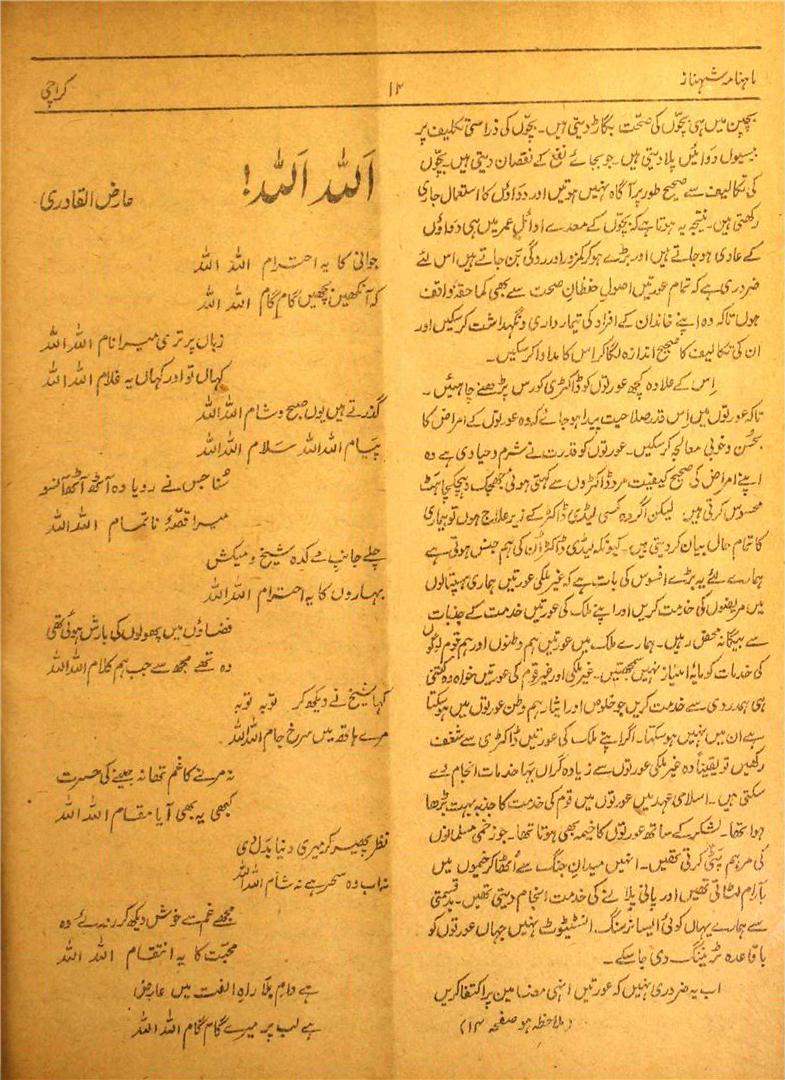 ماہنامہ شہناز
۱۲
کراچی
بچپن میں ہی بچّوں کی صحّت بگاڑ دیتی ہیں۔ بچّوں کی ذرا سی تکلیف پر
بیسیوں دوائیں پلا دیتی ہیں۔ جو بجائے نفع کے نقصان دیتی ہیں۔ بچّوں
کی تکالیف سے صحیح طور پر آگاہ نہیں ہوتیں اور دواؤں کا استعمال جاری
رکھتی ہیں۔ نتیجہ یہ ہوتا ہے کہ بچّوں کے معدے اوائلِ عمر میں ہی دواؤں
کے عادی ہو جاتے ہیں اور بڑے ہو کر کمزور اور ردگی بن جاتے ہیں اس لئے
ضروری ہے کہ تمام عورتیں اصولِ حفظانِ صحت سے بھی کما حقہٗ واقف
ہوں تاکہ وہ اپنے خاندان کے افراد کی تیمارداری و نگہداشت کر سکیں اور
ان کی تکالیف کا صحیح اندازہ لگا کر اس کا مداوا کر سکیں۔
اِس کے علاوہ کچھ عورتوں کو ڈاکٹری کورس پڑھنے چاہئیں۔
تاکہ عورتوں میں اِس قدر صلاحیت پیدا ہو جائے کہ وہ عورتوں کے امراض کا
بحُسن و خوبی معالجہ کر سکیں۔ عورتوں کو قدرت نے شرم و حیا دی ہے وہ
اپنے امراض کی صحیح کیفیت مرد ڈاکٹروں سے کہتی ہوئی جھجک ہچکچاہٹ
محسوس کرتی ہیں۔ لیکن اگر وہ کسی لیڈی ڈاکٹر کے زیر علاج ہوں تو بیماری
کا تمام حال بیان کر دیتی ہیں۔ کیونکہ لیڈی ڈاکٹر اُن کی ہم جنس ہوتی ہے
ہمارے لئے یہ بڑے افسوس کی بات ہے کہ غیر ملکی عورتیں ہماری ہسپتالوں
میں مریضوں کی خدمت کریں اور اپنے ملک کی عورتیں خدمت کے جذبات
سے بیگانہ محض رہیں۔ ہمارے ملک میں عورتیں ہم وطنوں اور ہم قوم لوگوں
کی خدمات کو مایۂ امتیاز نہیں سمجھتیں۔ غیر ملکی اور غیر قوم کی عورتیں خواہ وہ کتنی
ہی ہمدردی سے خدمت کریں جو خلوص اور ایثار ہم وطن عورتوں میں ہو سکتا
ہے ان میں نہیں ہو سکتا۔ اگر اپنے ملک کی عورتیں ڈاکٹری سے شغف
رکھیں تو یقیناً وہ غیر ملکی عورتوں سے زیادہ گراں بہا خدمات انجام دے
سکتی ہیں۔ اسلامی عہد میں عورتوں میں قوم کی خدمت کا جذبہ بہت بڑھا
ہوا تھا۔ لشکر کے ساتھ عورتوں کا خیمہ بھی ہوتا تھا۔ جو زخمی مسلمانوں
کی مرہم پٹی کرتی تھیں۔ انہیں میدانِ جنگ سے اُٹھا کر خیموں میں
بآرام لٹاتی تھیں اور پانی پلانے کی خدمت انجام دیتی تھیں۔ بدقسمتی
سے ہمارے یہاں کوئی ایسا نرسنگ انسٹیٹیوٹ نہیں جہاں عورتوں کو
باقاعدہ ٹریننگ دی جا سکے۔
اب یہ ضروری نہیں کہ عورتیں انہی مضامین پر اکتفا کریں
(ملاحظہ ہو صفحہ ۱۳)
اَللہ اَللہ!
عارض القادری
جوانی کا یہ احترام اللہ اللہ
کہ آنکھیں بچھیں گام گام اللہ اللہ
زباں پر تری میرا نام اللہ اللہ
کہاں تو اور کہاں یہ غلام اللہ اللہ
گذرتے ہیں یوں صبح و شام اللہ اللہ
پیام اللہ اللہ سلام اللہ اللہ
سُنا جس نے رویا وہ آٹھ آٹھ آنسو
میرا قصّۂ ناتمام اللہ اللہ
چلے جانبِ مے کدہ شیخ و میکش
بہاروں کا یہ احترام اللہ اللہ
فضاؤں میں پھولوں کی بارش ہوئی تھی
وہ تھے مجھ سے جب ہم کلام اللہ اللہ
کہا شیخ نے دیکھ کر توبہ توبہ
مرے ہاتھ میں سرخ جام اللہ اللہ
نہ مرنے کا غم تھا نہ جینے کی حسرت
کبھی یہ بھی آیا مقام اللہ اللہ
نظر پھیر کر میری دنیا بدل دی
نہ اب وہ سحر ہے نہ شام اللہ اللہ
مجھے غم سے خوش دیکھ کر رو دئے وہ
محبّت کا یہ انتقام اللہ اللہ
ہے دامِ بلا راہِ الفت میں عارض
ہے لب پر میرے گام گام اللہ اللہ